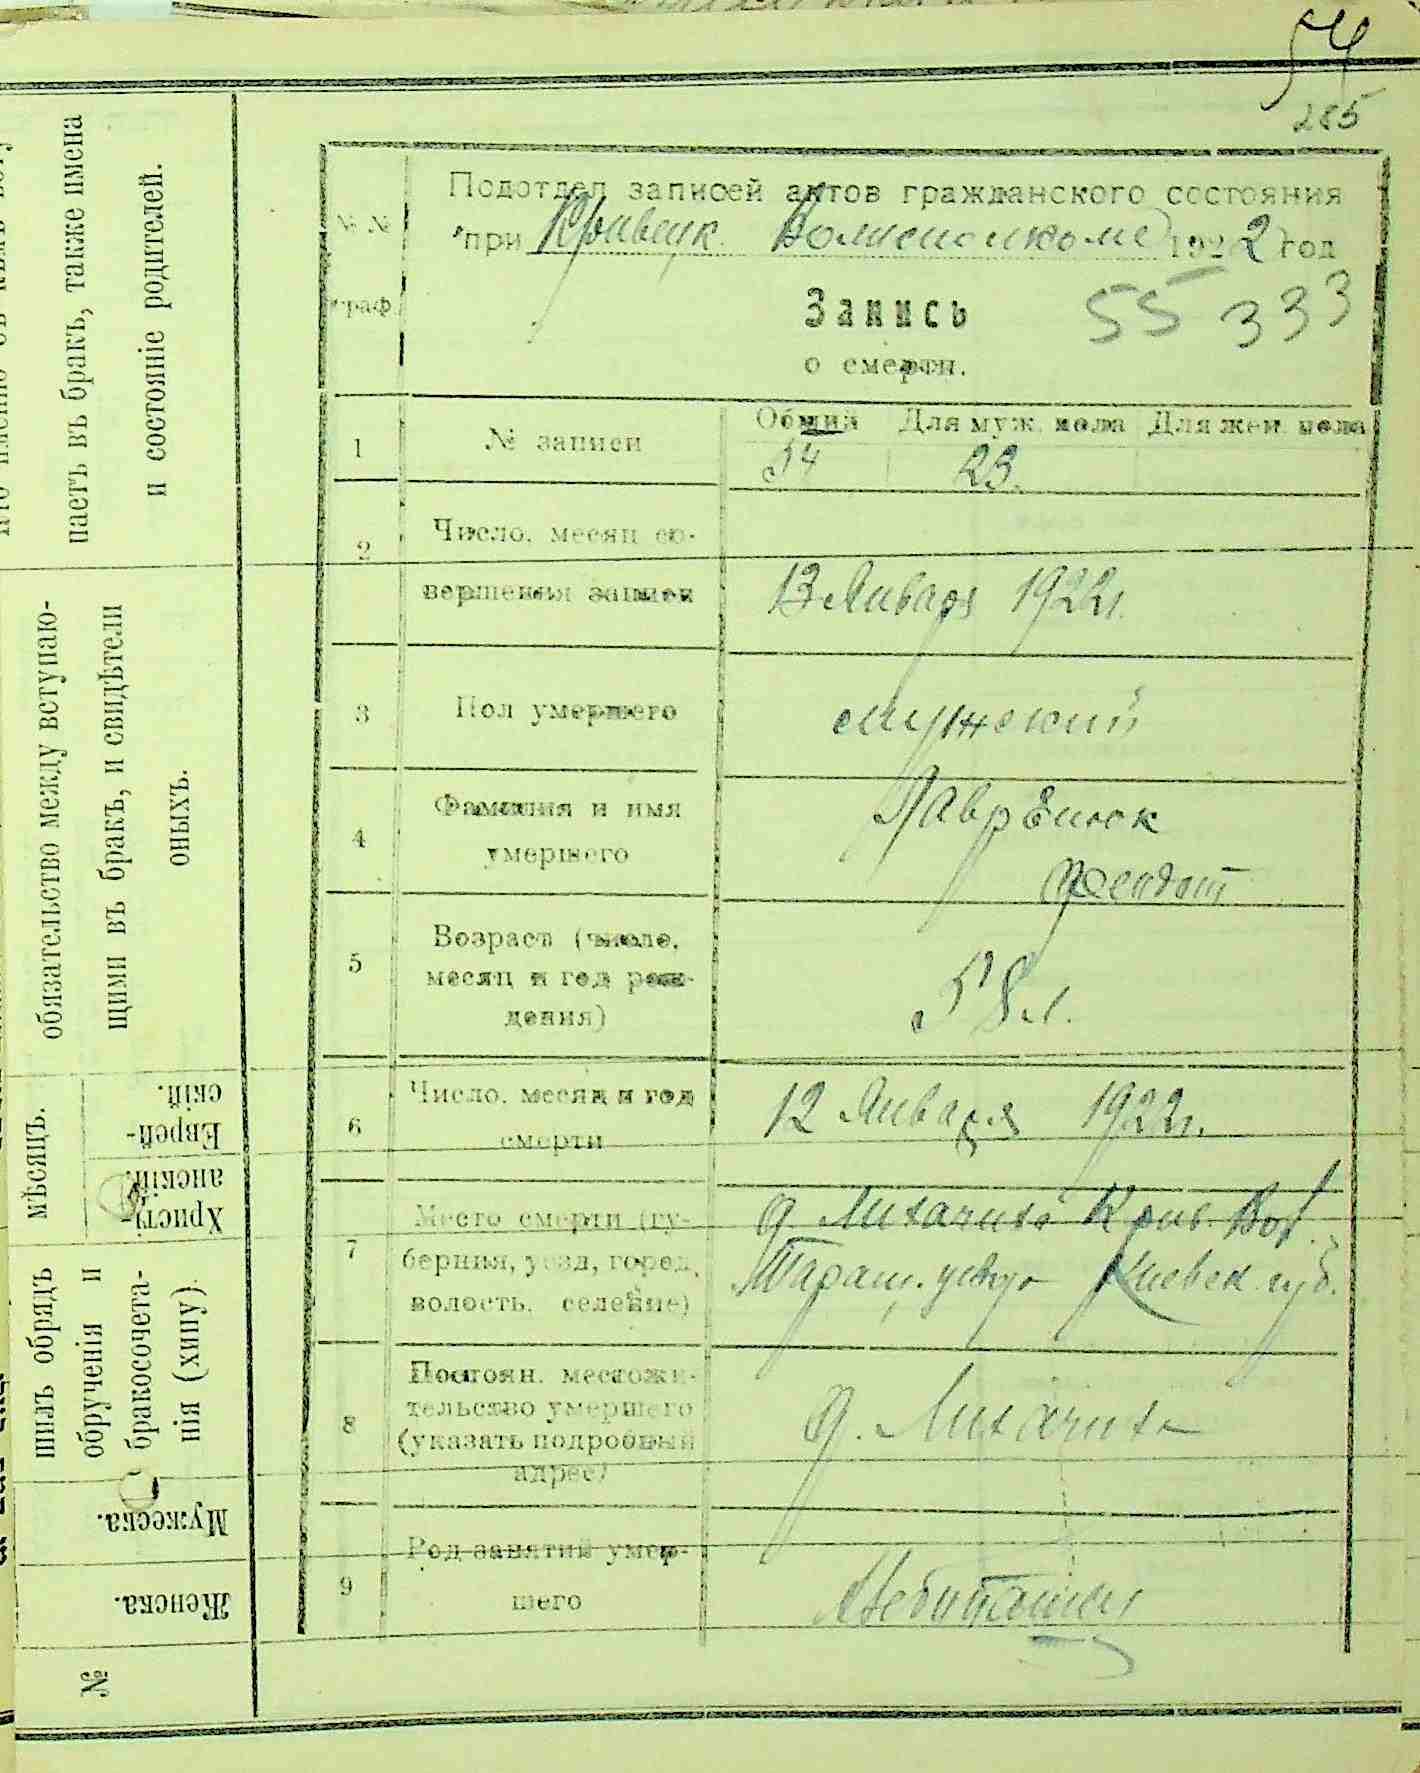 54
285
Подотдел записей актов гражданского состояния
№№
при Кривецк. Волисполкоме 1922 год
граф
Запись
55 333
о смерти.
1 № записи
Общий Для муж. пола Для жен. пола
54 23.
2 Число, месяц со-
вершения записи
13 Января 1922г.
3 Пол умершего
мужский
4 Фамилия и имя
умершего
Феидот
5 Возраст (число,
месяц и год рож-
дения)
58 л.
6 Число, месяц и год
смерти
12 Января 1922г.
7 Место смерти (гу-
берния, уезд, город,
волость, селение)
д. Лихачиха Крив. Вол.
Таращ. уезда Киевск. губ.
8 Постоян. местожи-
тельство умершего
(указать подробный
адрес)
д. Лихачиха
9 Род занятий умер-
шего
паетъ въ бракъ, также имена
и состояніе родителей.
обязательство между вступаю-
щими въ бракъ, и свидѣтели
оныхъ.
мѣсяцъ.
Еврей-
скій.
Христі-
анскій.
шилъ обрядъ
обрученія и
бракосочета-
нія (хипу)
Мужеска.
Женска.
№